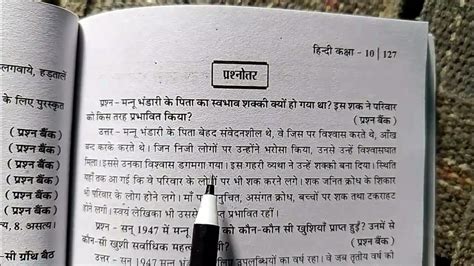 लगवाये, हड़तालें
के लिए पुरस्कृत
( प्रश्न बैंक )
( प्रश्न बैंक )
( प्रश्न बैंक )
( प्रश्न बैंक )
य, 8. असत्य।
( प्रश्न बैंक )
सी ग्रंथ बैठ
हिन्दी कक्षा - 10 | 127
प्रश्नोतर
प्रश्न - मन्नू भंडारी के पिता का स्वभाव शक्की क्यों हो गया था? इस शक ने परिवार
को किस तरह प्रभावित किया? ( प्रश्न बैंक )
उत्तर - मन्नू भंडारी के पिता बेहद संवेदनशील थे, वे जिस पर विश्वास करते थे, आँख
बन्द करके करते थे। जिन निजी लोगों पर उन्होंने भरोसा किया, उनसे उन्हें विश्वासघात
मिला। इससे उनका विश्वास डगमगा गया। इस गहरी व्यथा ने उन्हें शक्की बना दिया। स्थिति
यहाँ तक आ गई कि वे परिवार के लोगों पर भी शक करने लगे। शक जनित क्रोध के शिकार
भी परिवार के लोग होने लगे। माँ प अनुचित, असंगत क्रोध, बच्चों पर शक तथा टकराहट
होने लगी। स्वयं लेखिका भी उससे प्रभावित रहीं।
प्रश्न - सन् 1947 में मन्नू को कौन-कौन सी खुशियाँ प्राप्त हुईं? उनमें से
कौन-सी खुशी सर्वाधिक महत्व थी? ( प्रश्न बैंक )
उत्तर - सन् 1947 मन्नू उपलब्धियों का वर्ष रहा। वे जब तृतीय वर्ष की